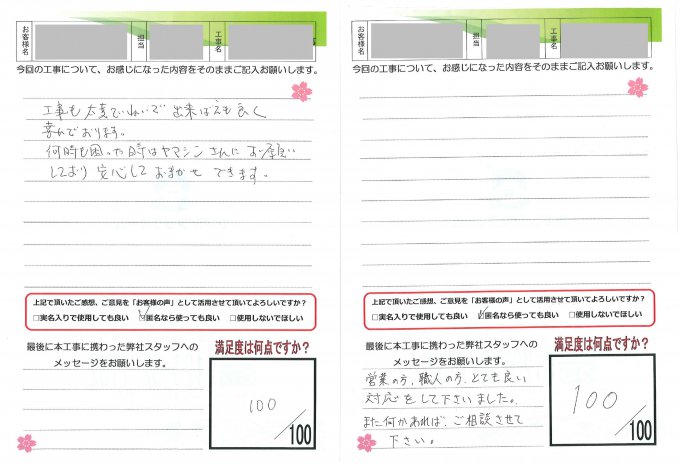 お客様名
担当
工事名
今回の工事について、お感じになった内容をそのままご記入お願いします。
工事も大変ていねいで出来ばえも良く
喜んでおります。
何時も困った時はヤマシンさんにお願い
しており安心しておまかせできます。
上記で頂いたご感想、ご意見を「お客様の声」として活用させて頂いてよろしいですか?
□実名入りで使用しても良い ☑匿名なら使っても良い □使用しないでほしい
最後に本工事に携わった弊社スタッフへの
メッセージをお願いします。
満足度は何点ですか?
100/100
お客様名
担当
工事名
今回の工事について、お感じになった内容をそのままご記入お願いします。
上記で頂いたご感想、ご意見を「お客様の声」として活用させて頂いてよろしいですか?
□実名入りで使用しても良い ☑匿名なら使っても良い □使用しないでほしい
最後に本工事に携わった弊社スタッフへの
メッセージをお願いします。
営業の方、職人の方、とても良い
対応をして下さいました。
また何かあれば、ご相談させて
下さい。
満足度は何点ですか?
100/100